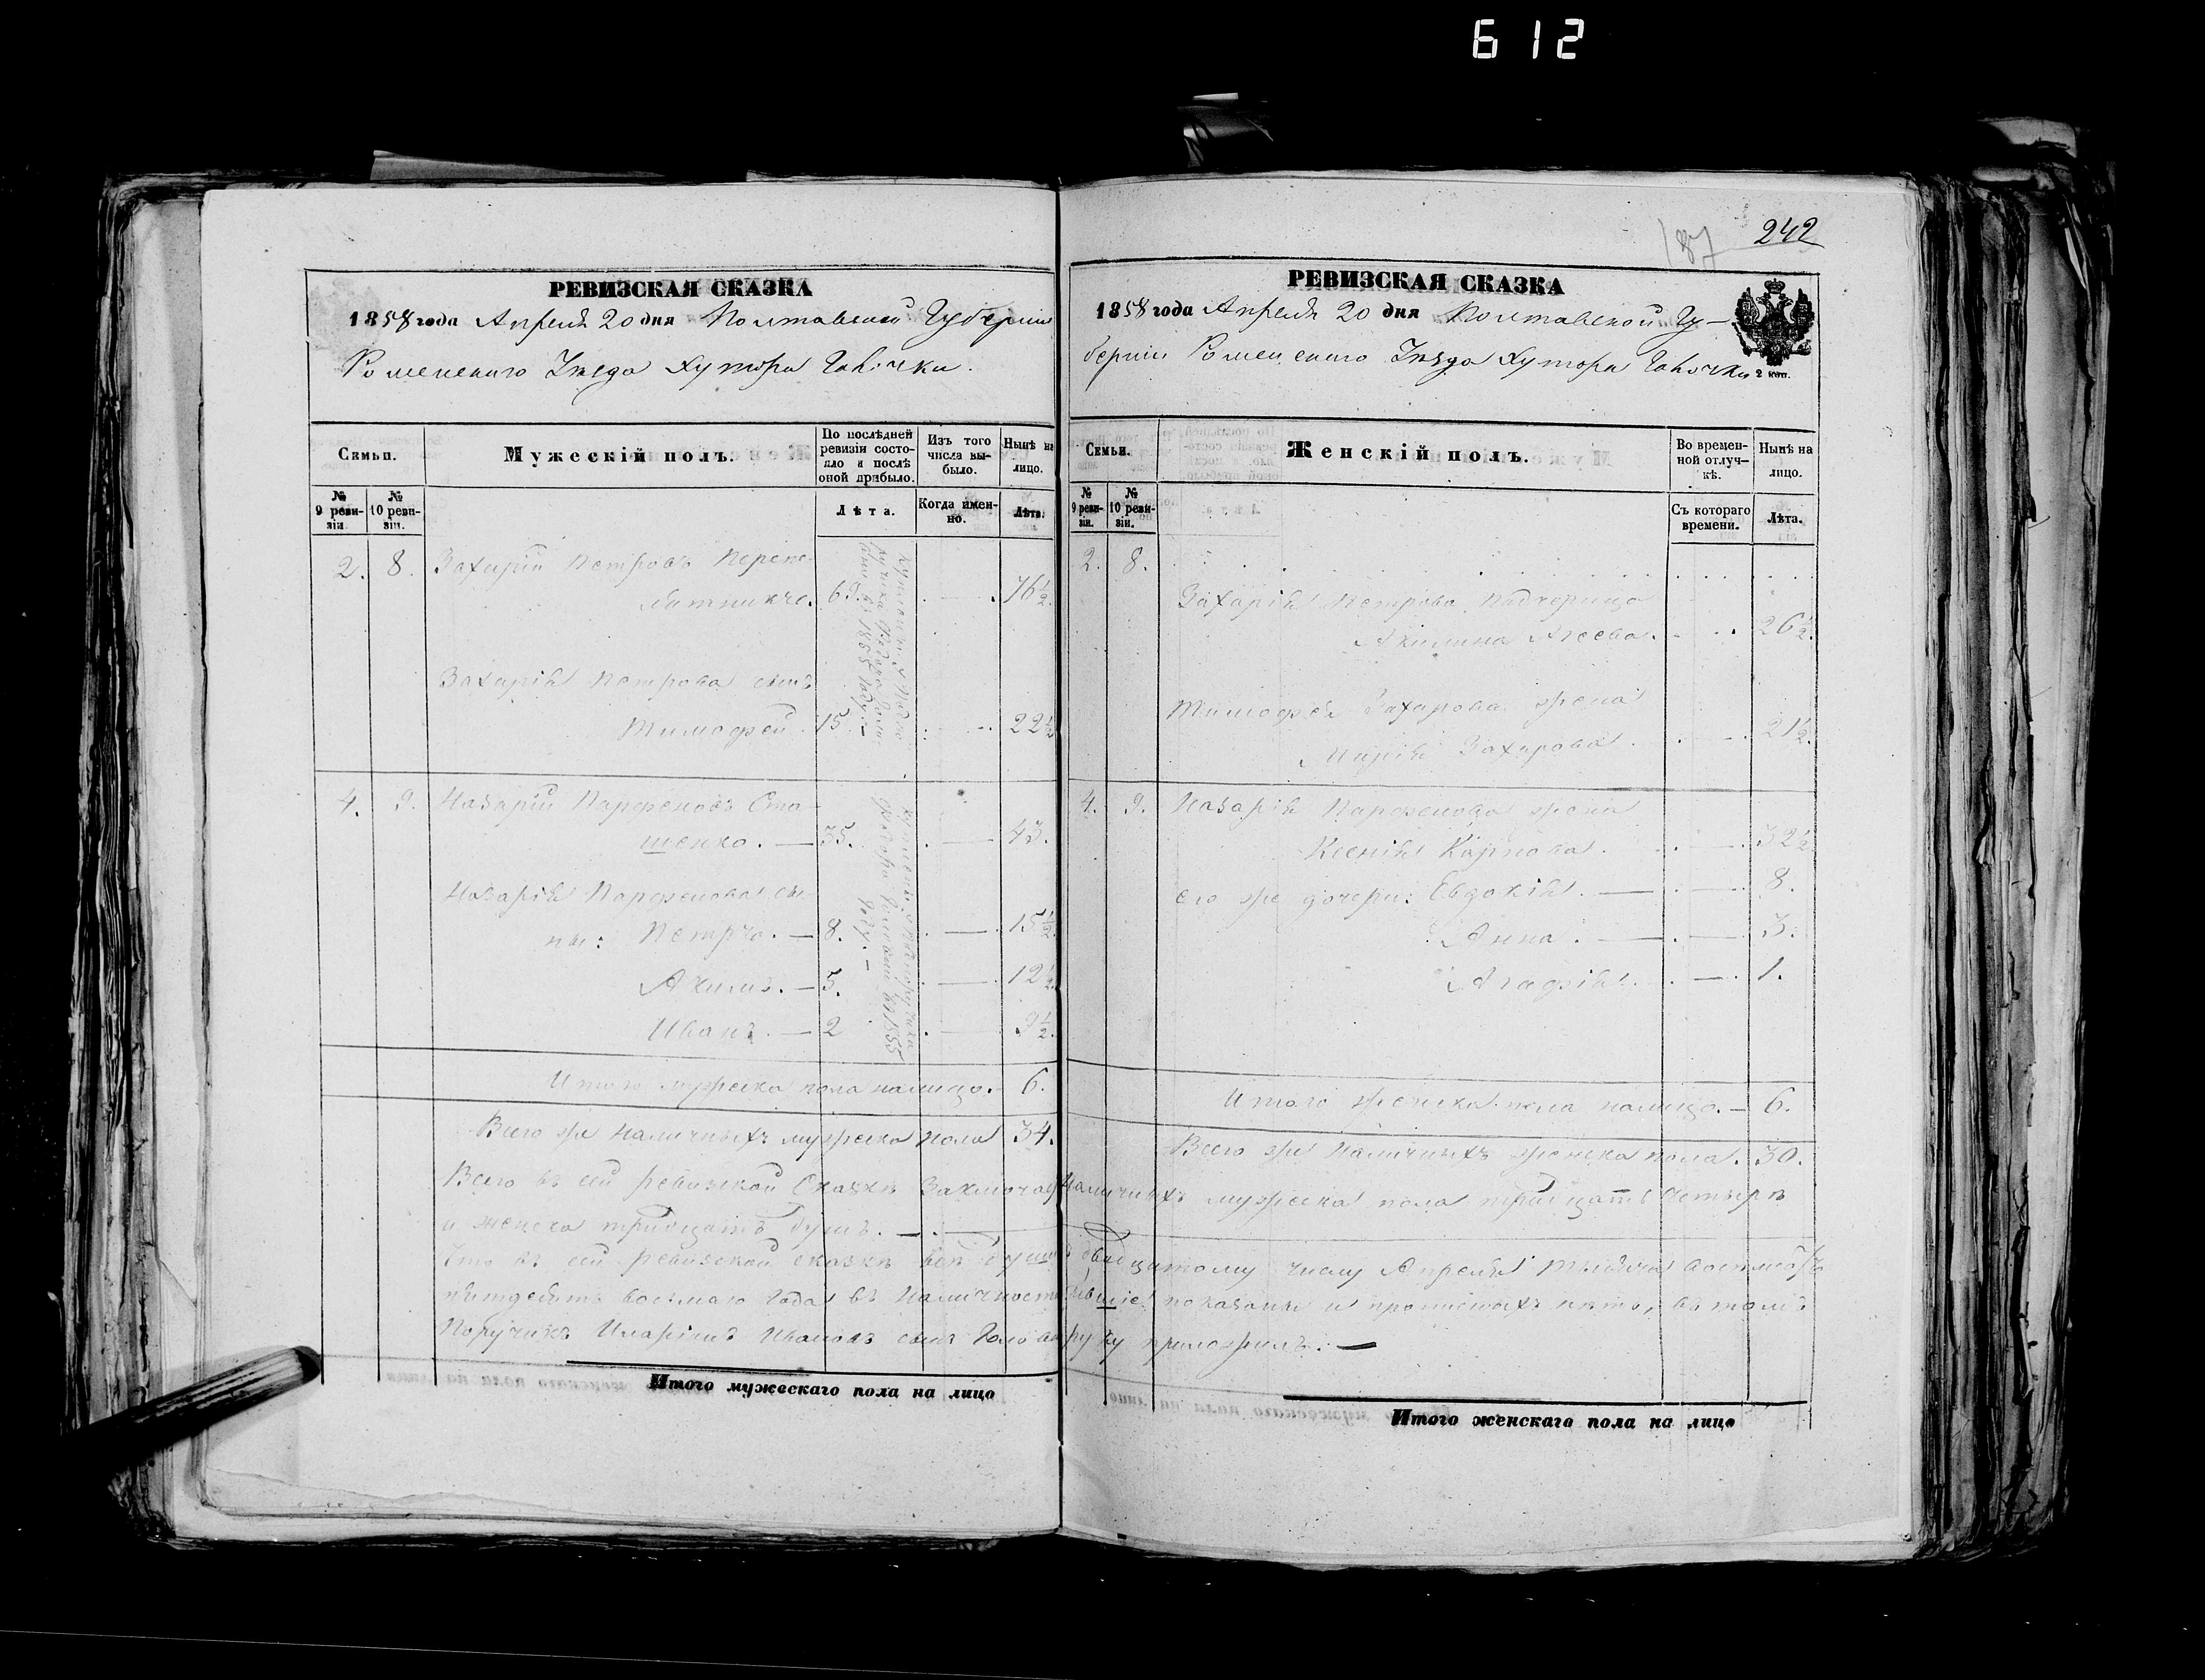 612
187
242
РЕВИЗСКАЯ СКАЗКА
1858 года Апреля 20 дня Полтавской Губернии
Роменского Уѣзда Хутора
Семьи.
Мужескій полъ.
По послѣдней ревизіи состояло и послѣ оной прибыло.
Изъ того числа выбыло.
Нынѣ на лицо.
№ 9 ревизіи.
№ 10 ревизіи.
Лѣта.
Когда именно.
Лѣта.
2. 8. Захарій Петровъ Перепе-
лятниче. 69. 76½.
Захарія Петрова сынъ
Тимофей. 15. 22½
4. 9. Назарій Парфеновъ Сто-
шенко. — 35. 43.
Назарія Парфенова сы-
ны: Петръ. — 8. 15½.
Акимъ. — 5. 12½.
Иванъ. — 2 9½.
Итого мужеска пола налицо. — 6.
Всего же наличныхъ мужеска пола 34.
РЕВИЗСКАЯ СКАЗКА
1858 года Апреля 20 дня Полтавской Гу-
берніи Роменского Уѣзда Хутора
2 коп.
Семьи.
Женскій полъ.
Во временной отлучкѣ.
Нынѣ на лицо.
№ 9 ревизіи.
№ 10 ревизіи.
Съ котораго времени.
Лѣта.
2. 8.
Захарія Петрова
Акилина Агеева. 26½.
Тимофея Захарова жена
Марія Захарова. 21½.
4. 9. Назарія Парфенова жена
Ксенія Карпова. 32½
его же дочери: Евдокія. — 8.
Анна. — 3.
Агафія. — 1.
Итого женска пола налицо. — 6.
Всего же наличныхъ женска пола. 30.
Всего въ сей ревизской Сказкѣ Заключает наличныхъ мужеска пола тридцать четыре
и женска тридцать душъ. —
Что въ сей ревизской сказкѣ всѣ души к двадцатому числу Апреля тысяча восемсотъ
пятдесятъ восьмаго года въ наличности показаны и пропискныхъ нѣтъ, въ томъ
Поручикъ Иларіонъ Ивановъ сынъ руку приложилъ. —
Итого мужескаго пола на лицо
Итого женскаго пола на лицо